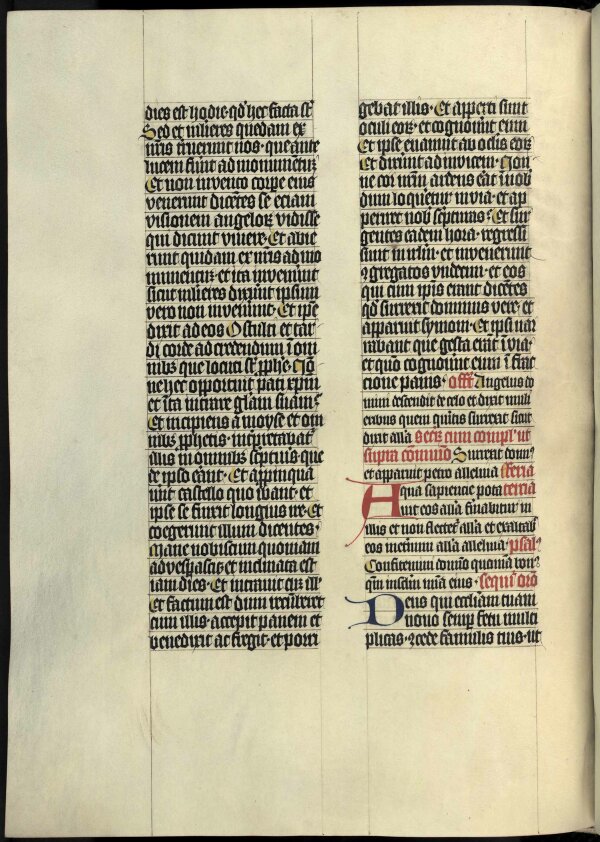 dies est hodie · qd' hec facta st̄
Sed et mlieres quedam ex
nr̄is truerunt nos · que ante
lucem funt ad monumentū
Et non invento corpe eius
venerunt dicētes se eciam
visionem angelorꝝ vidisse
qui dicunt vivere · Et abie
runt quidam ex nr̄is ad mo
numentū · et ita invenunt
sicut mlieres dixunt ipsum
vero non invenunt · Et ip̄e
dixit ad eos O stulti et tar
di corde ad credendum ī om
nibꝫ que locuti st̄ ꝓphe · Nō
ne hec opportuit pati xpm
et ita intrare glam suam
Et incipiens a moyse et om
nibꝫ ꝓphetis · intpretabat'
illis in omnibꝫ septuris que
de ipso erāt · Et appinqua
unt castello quo ibant · et
ipse se finxit longius ire · Et
coegerunt illum dicentes ·
Mane nobiscum quoniam
advespascit et inclinata est
iam dies · Et intravit cū ill'
Et factum est dum recūberet
cum illis · accepit panem et
benedixit ac fregit · et porri
gebat illis · Et apperti sunt
oculi eorꝝ · et cognovunt eum
Et ipse evanuit ab oclis eorꝝ
Et dixunt ad invicem · Non
ne cor nr̄m ardens erat ī nob
dum loquetur in via · et ap
periret nob septuras · Et sur
gentes eadem hora · regressi
sunt in irlm · et invenerunt
ꝯgregatos undecim · et eos
qui cum ip̄is erant dicētes
qd surrexit dominus vere · et
apparuit symoni · Et ipsi nar
rabant que gesta erāt ī via ·
et quō cognovunt eum ī frac
cione panis · offr̄ Angelus do
mini descendit de celo et dixit muli
eribus quem quitis surrexit sicut
dixit alla Secr̄ cum compl' ut
supra cōmuīo Surrexit domn'
et apparuit petro alleluia fferia
Aqua sapiencie pota tercia
vit eos alla firmabitur in
illis et non flectet' alla et exaltab'
eos inetnum alla alleluia · psal'
Confitemini domīo quoniā bon'
qm in sclm mīa eius · sequī orō
Deus qui eccliam tuam
novo semp fetu multi
plicas · ꝯcede famulis tuis · ut